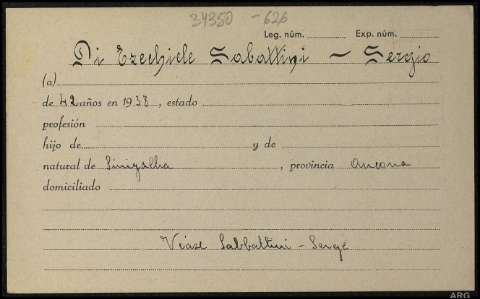 34350 - 626
Leg. núm. Exp. núm.
Di Ezechiele Sabattini - Sergio
(a)
de 42 años en 1938, estado
profesión
hijo de y de
natural de Sinigalha, provincia Ancona
domiciliado
Véase Sabbattini - Serge
ARG